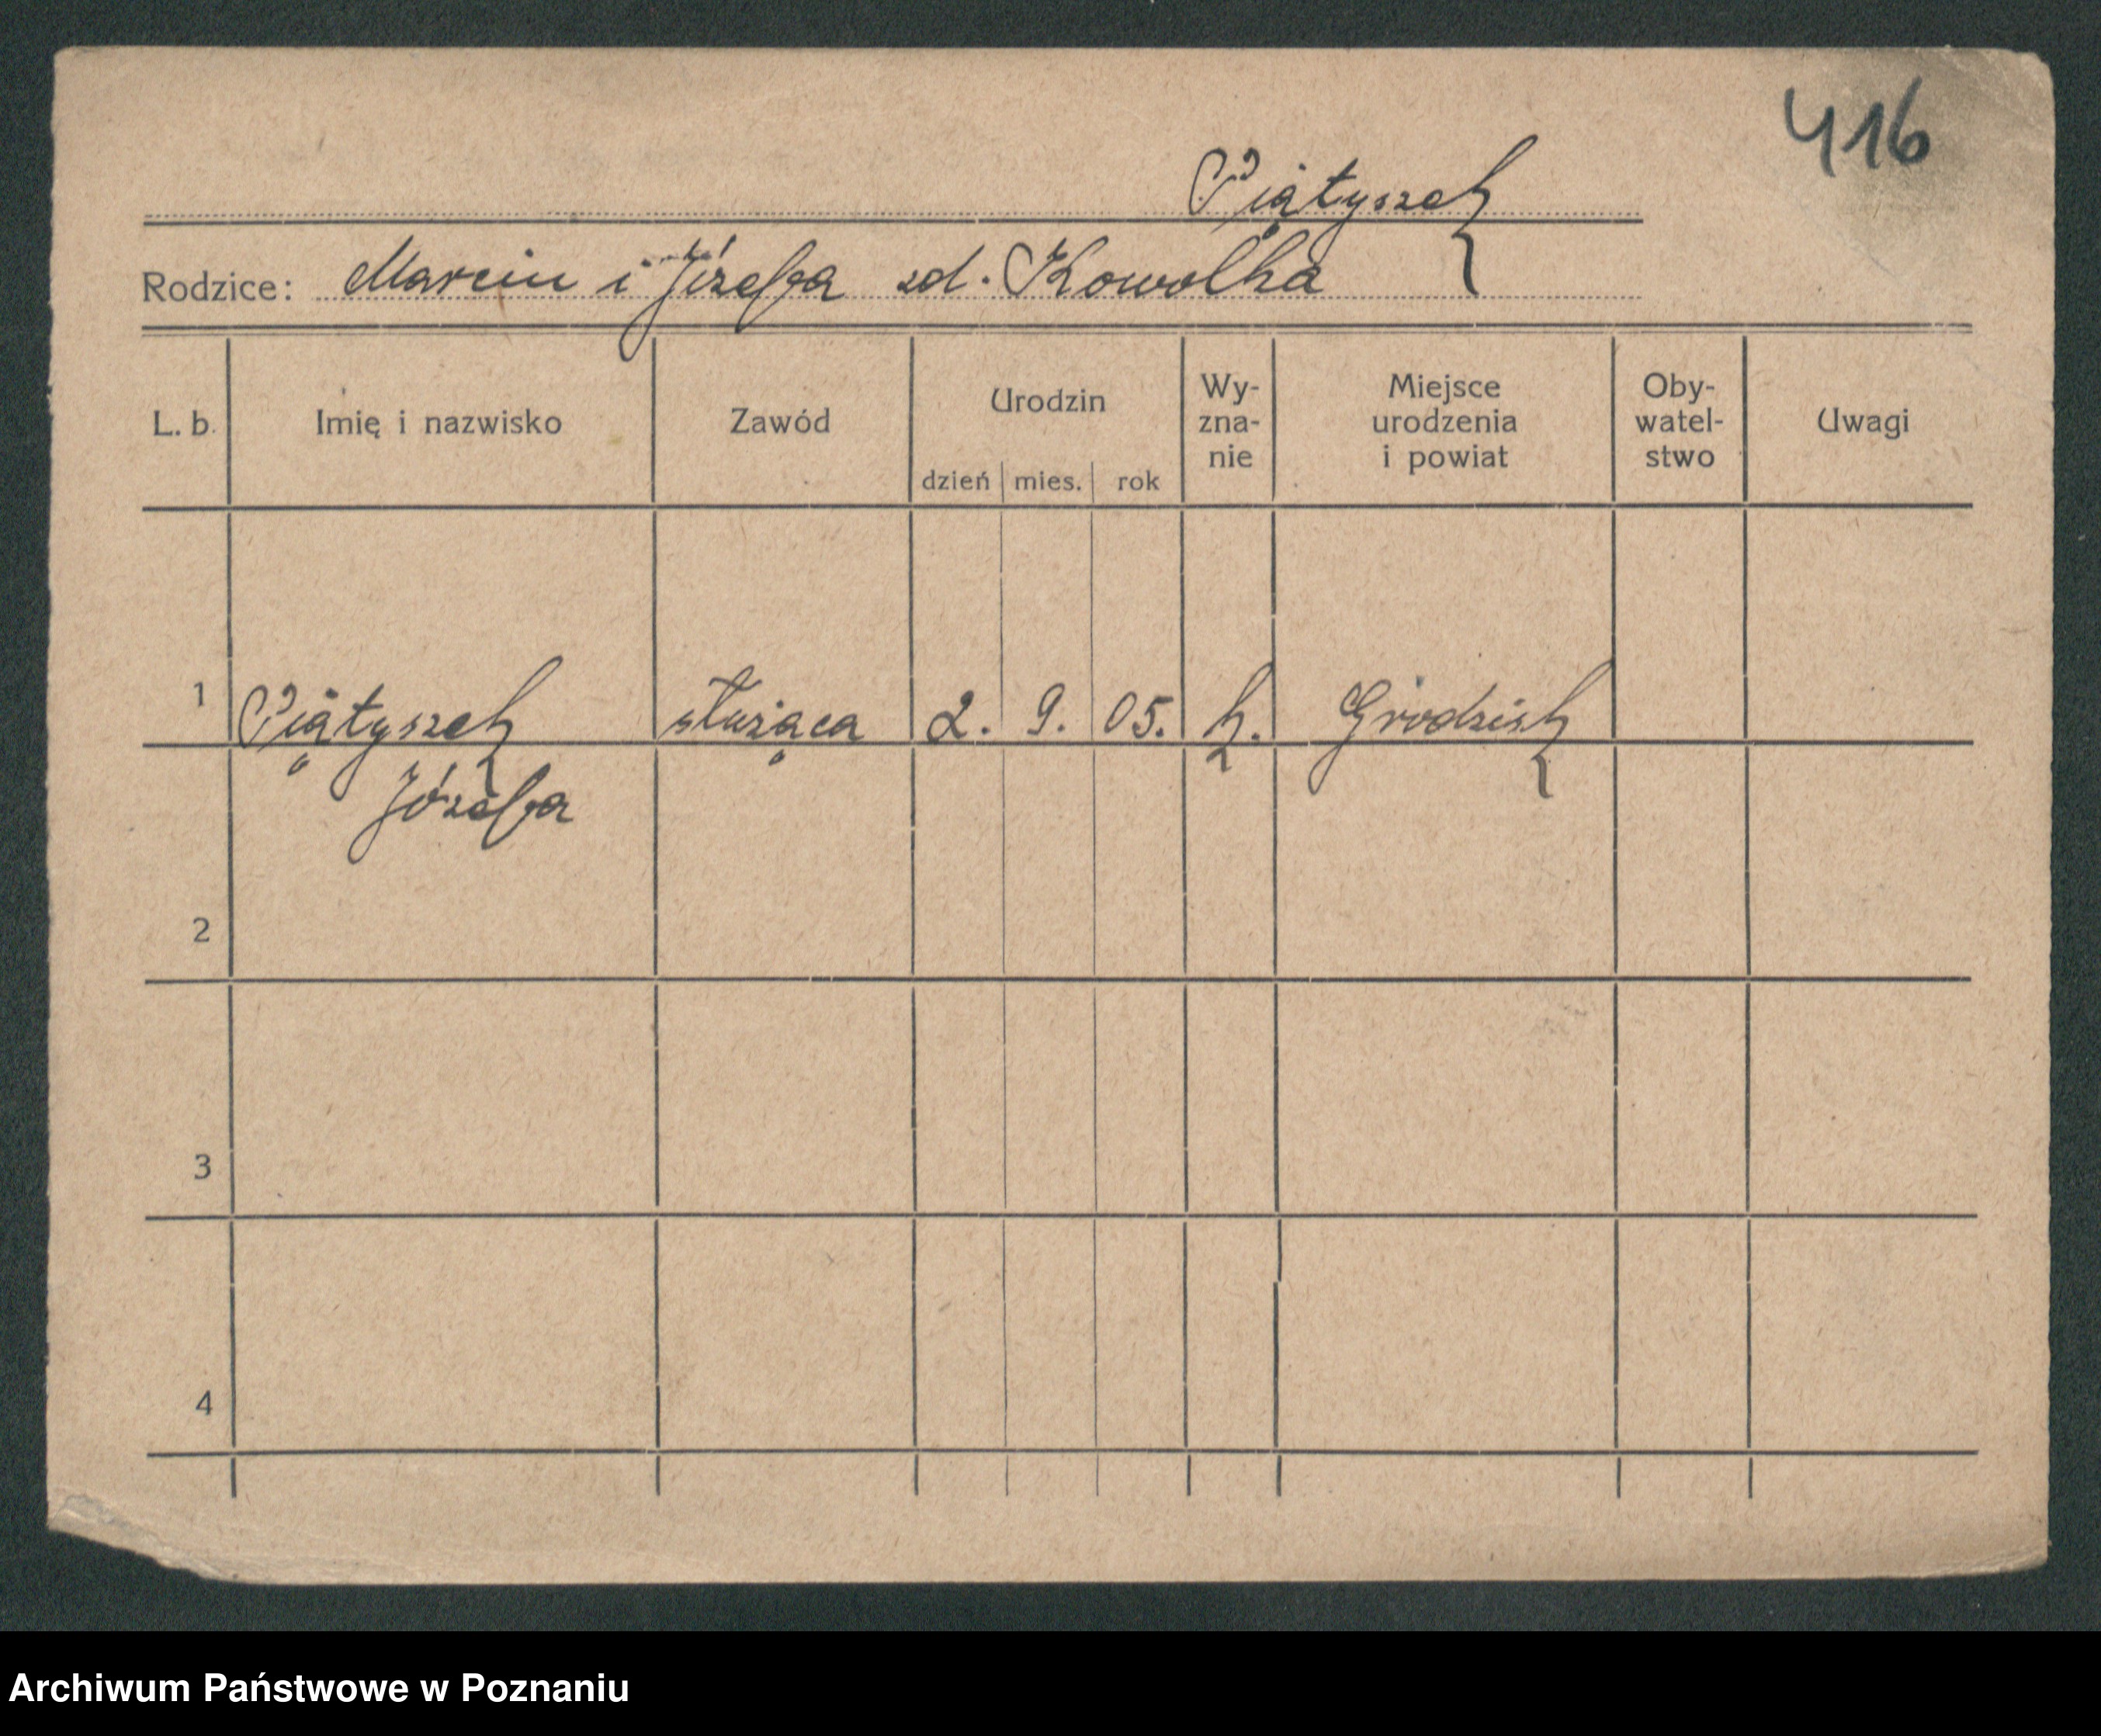 416
Piątyszek
Rodzice: Marcin i Józefa zd. Kowolka
L. b. Imię i nazwisko Zawód Urodzin dzień mies. rok Wy-zna-nie Miejsce urodzenia i powiat Oby-watel-stwo Uwagi
1 Piątyszek służąca 2. 9. 05. k. Grodzisk
Józefa
2
3
4
Archiwum Państwowe w Poznaniu